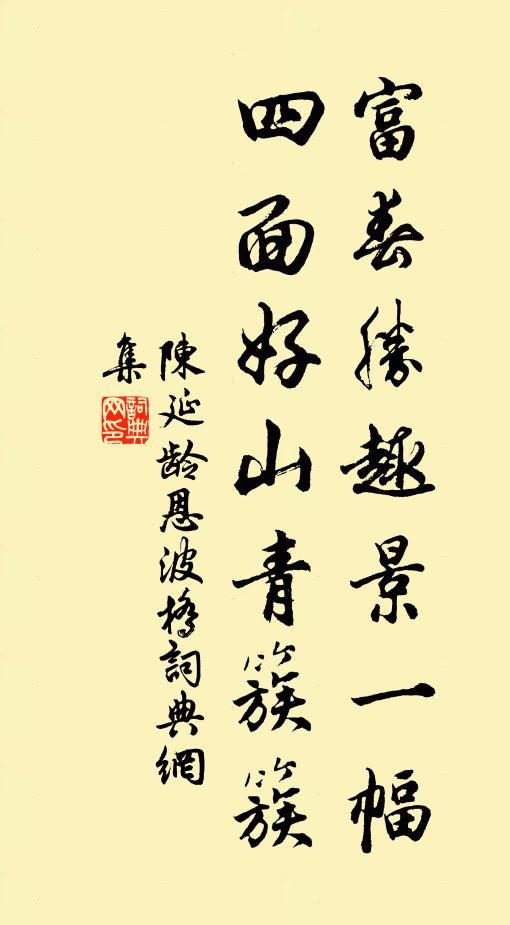 富春勝趣景一幅
四面好山青簇簇
陳延齡恩波橋詞典網
集
詞典
网印